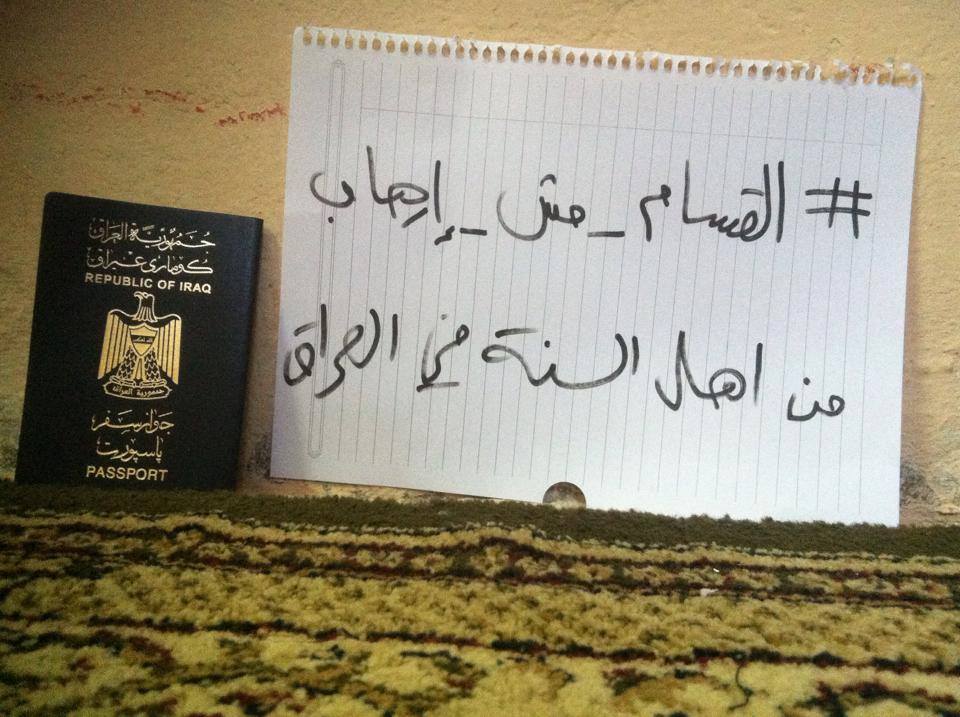 #القسام_مش_إرهاب
من اهل السنة في العراق
جمهورية العراق
كۆماری عێراق
REPUBLIC OF IRAQ
جمهورية العراق
جواز سفر
پاسپۆرت
PASSPORT